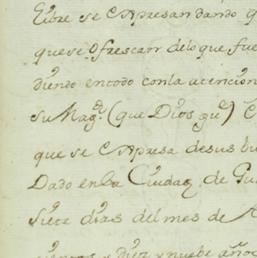 se Expresan dando q
que se ofrescaer de lo que fue
diendo en todo con la atencion
su Mag.d (que Dios gu.e) E
que se Expresa de sus bu
Dado en la Ciudad de Gu
Siete dias del mes de A
y diez y nuebe años